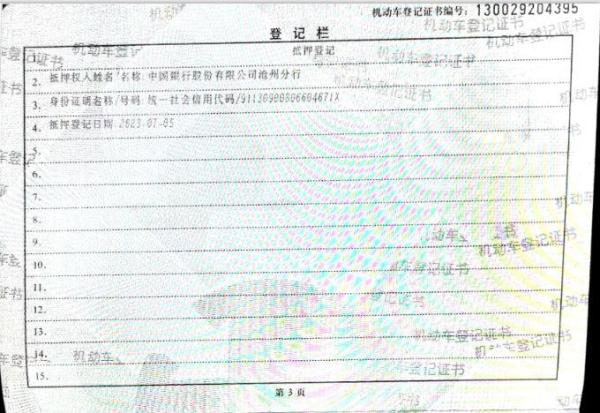 机动车登记证书编号：130029204395
登记栏
1. 抵押登记
2. 抵押权人姓名/名称：中国银行股份有限公司沧州分行
3. 身份证明名称/号码 统一社会信用代码/91130900806604671X
4. 抵押登记日期 2023-07-05
5.
6.
7.
8.
9.
10.
11.
12.
13.
14.
15.
第 3 页